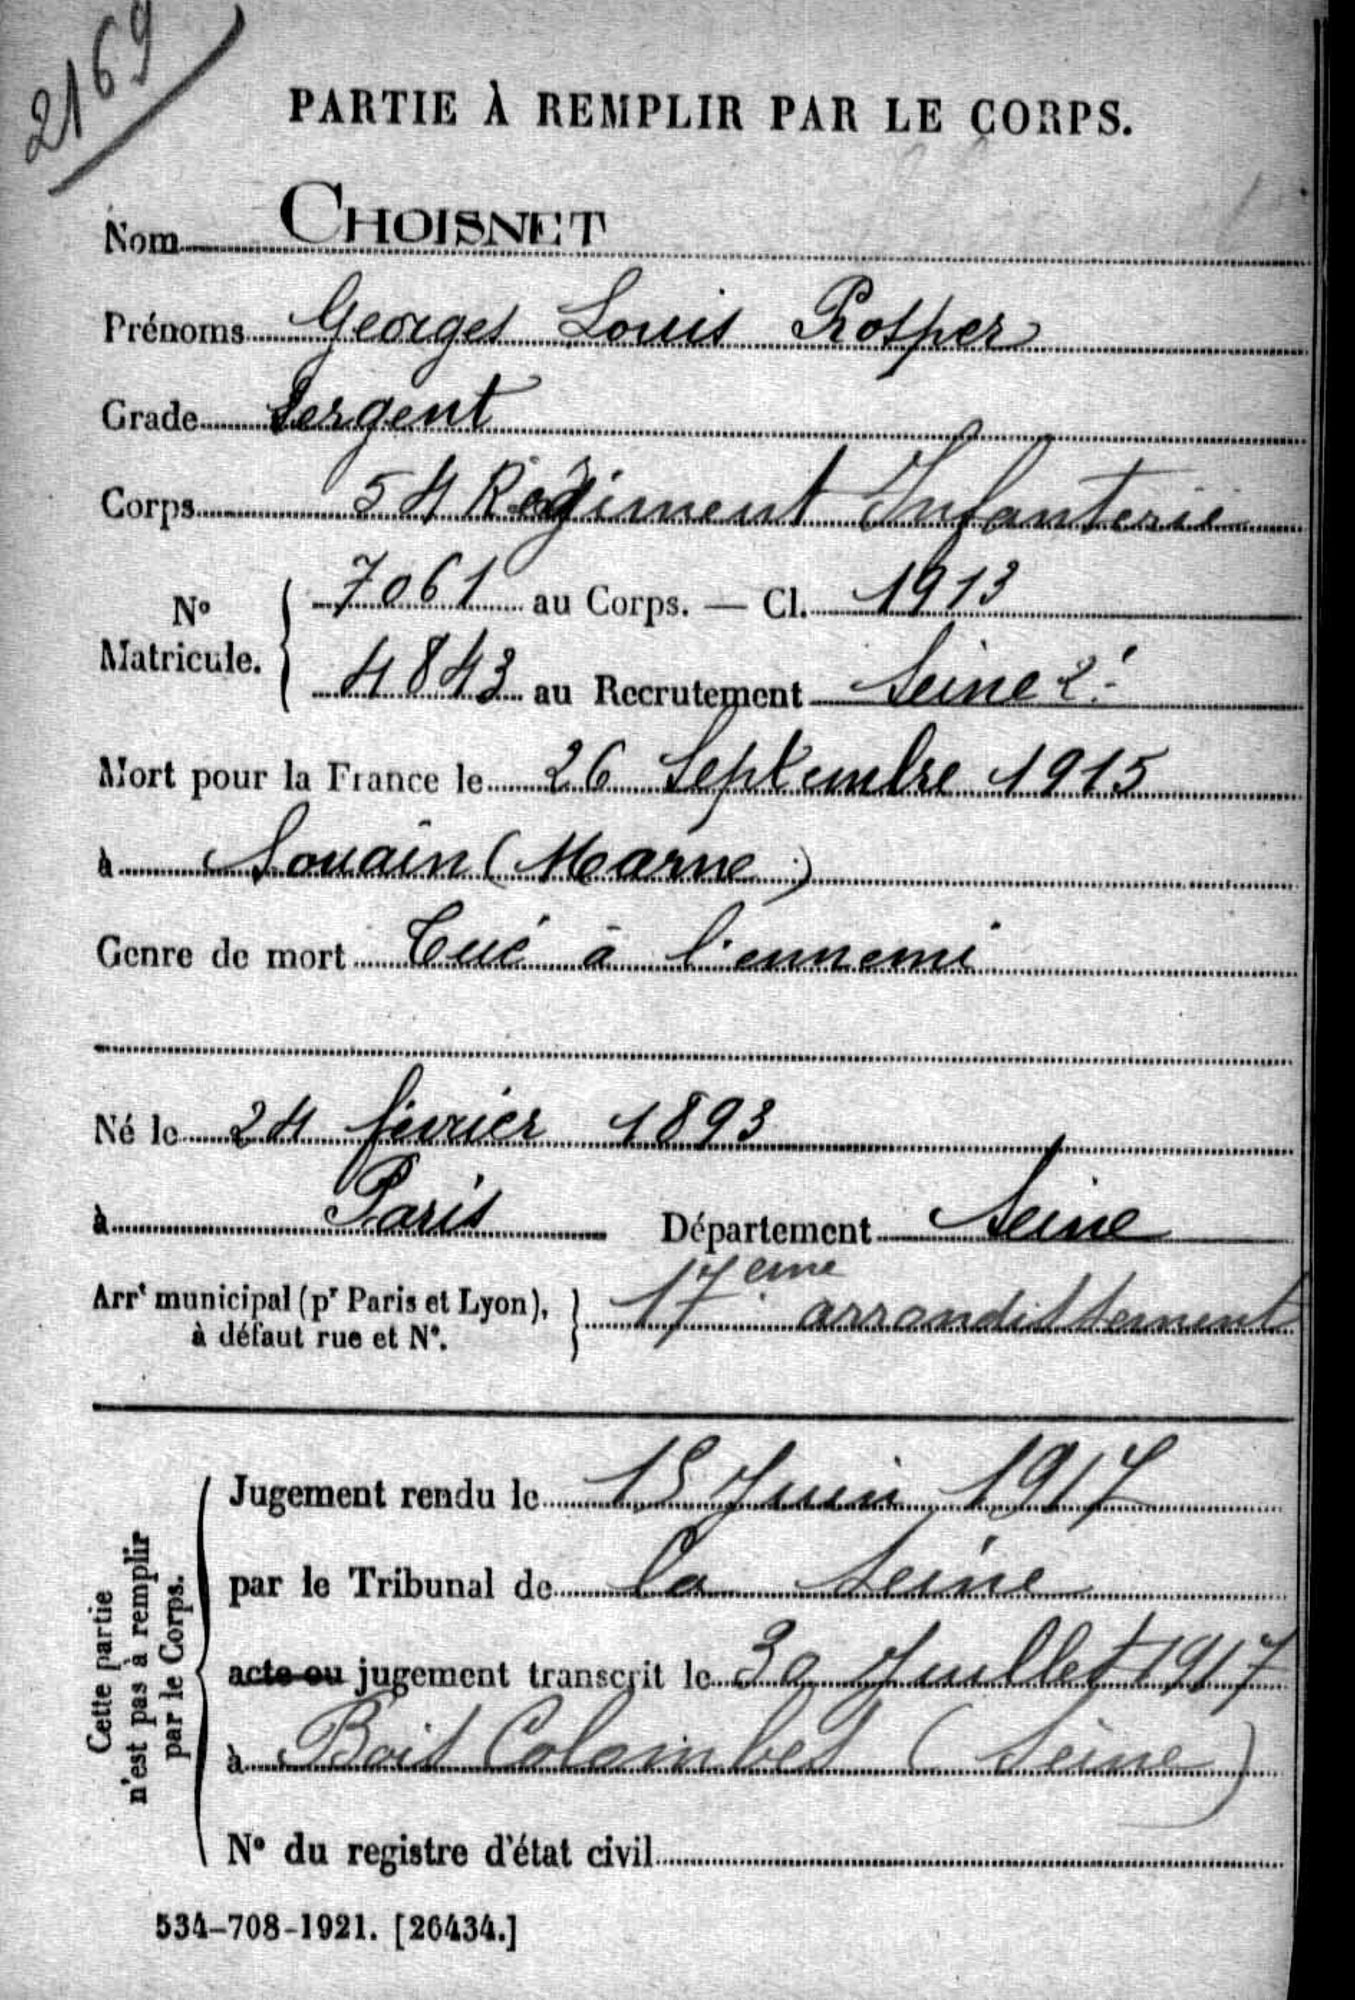 2169
PARTIE À REMPLIR PAR LE CORPS.
Nom CHOISNET
Prénoms Georges Louis Prosper
Grade Sergent
Corps 54 Régiment Infanterie
N° Matricule. { 7061 au Corps. — Cl. 1913
4843 au Recrutement Seine 2e
Mort pour la France le 26 Septembre 1915
à Souain (Marne)
Genre de mort Tué à l'ennemi
Né le 24 février 1893
à Paris Département Seine
Arrt municipal (pr Paris et Lyon), } 17eme arrondissement
à défaut rue et N°.
Cette partie
n'est pas à remplir
par le Corps.
Jugement rendu le 15 Juin 1917
par le Tribunal de la Seine
acte ou jugement transcrit le 30 Juillet 1917
à Bois Colombes (Seine)
N° du registre d'état civil
534-708-1921. [26434.]